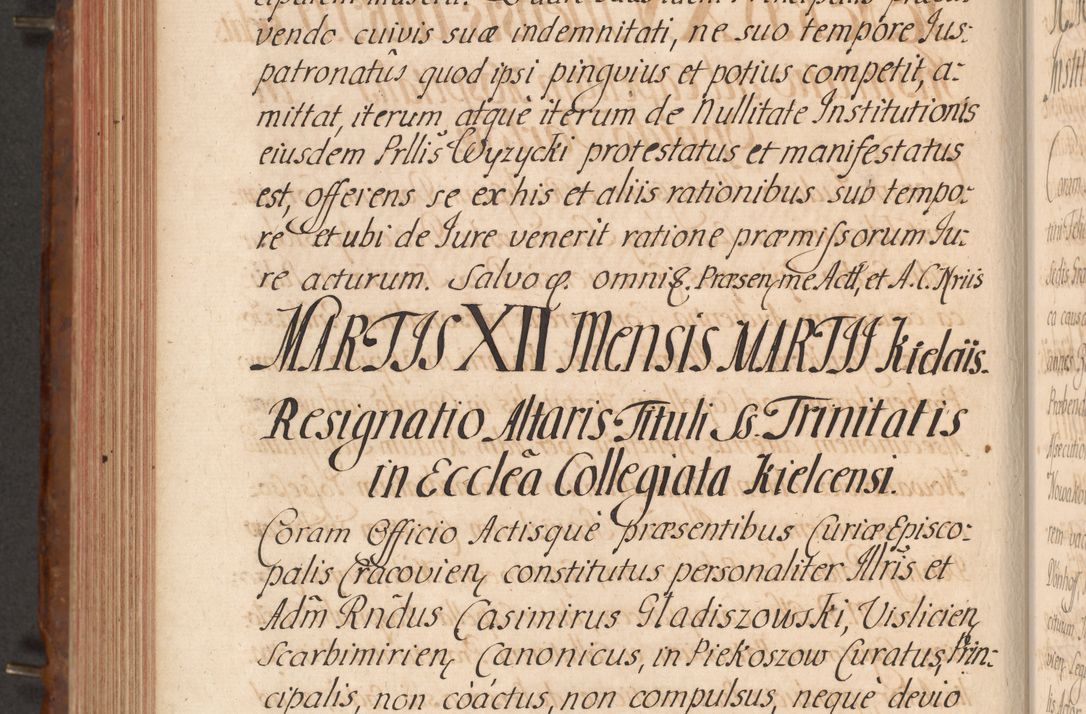 vendo cuivis suæ indemnitati, ne suo tempore Jus:
patronatûs quod ipsi pinguius et potius competit, a:
mittat, iterum atquè iterum de Nullitate Institutionis
eiusdem Prllis Wyzycki protestatus et manifestatus
est, offerens se ex his et aliis rationibus suo tempo:
re et ubi de Jure venerit ratione præmissorum Ju:
re acturum. Salvo omni. Præsen, me Actt, et A. C. Nriis
MARTIS XII Mensis MARTII Kielciis.
Resignatio Altaris Tituli Ss. Trinitatis
in Ecclẽa Collegiata Kielcensi.
Coram Officio Actisquè præsentibus Curiæ Episco:
palis Cracovien, constitutus personaliter Illris et
Adm̃ Rñdus Casimirus Gładiszowski, Vislicien,
Scarbimirien, Canonicus, in Piekoszow Curatus, Prin:
cipalis, non coáctus, non compulsus, nequè devio